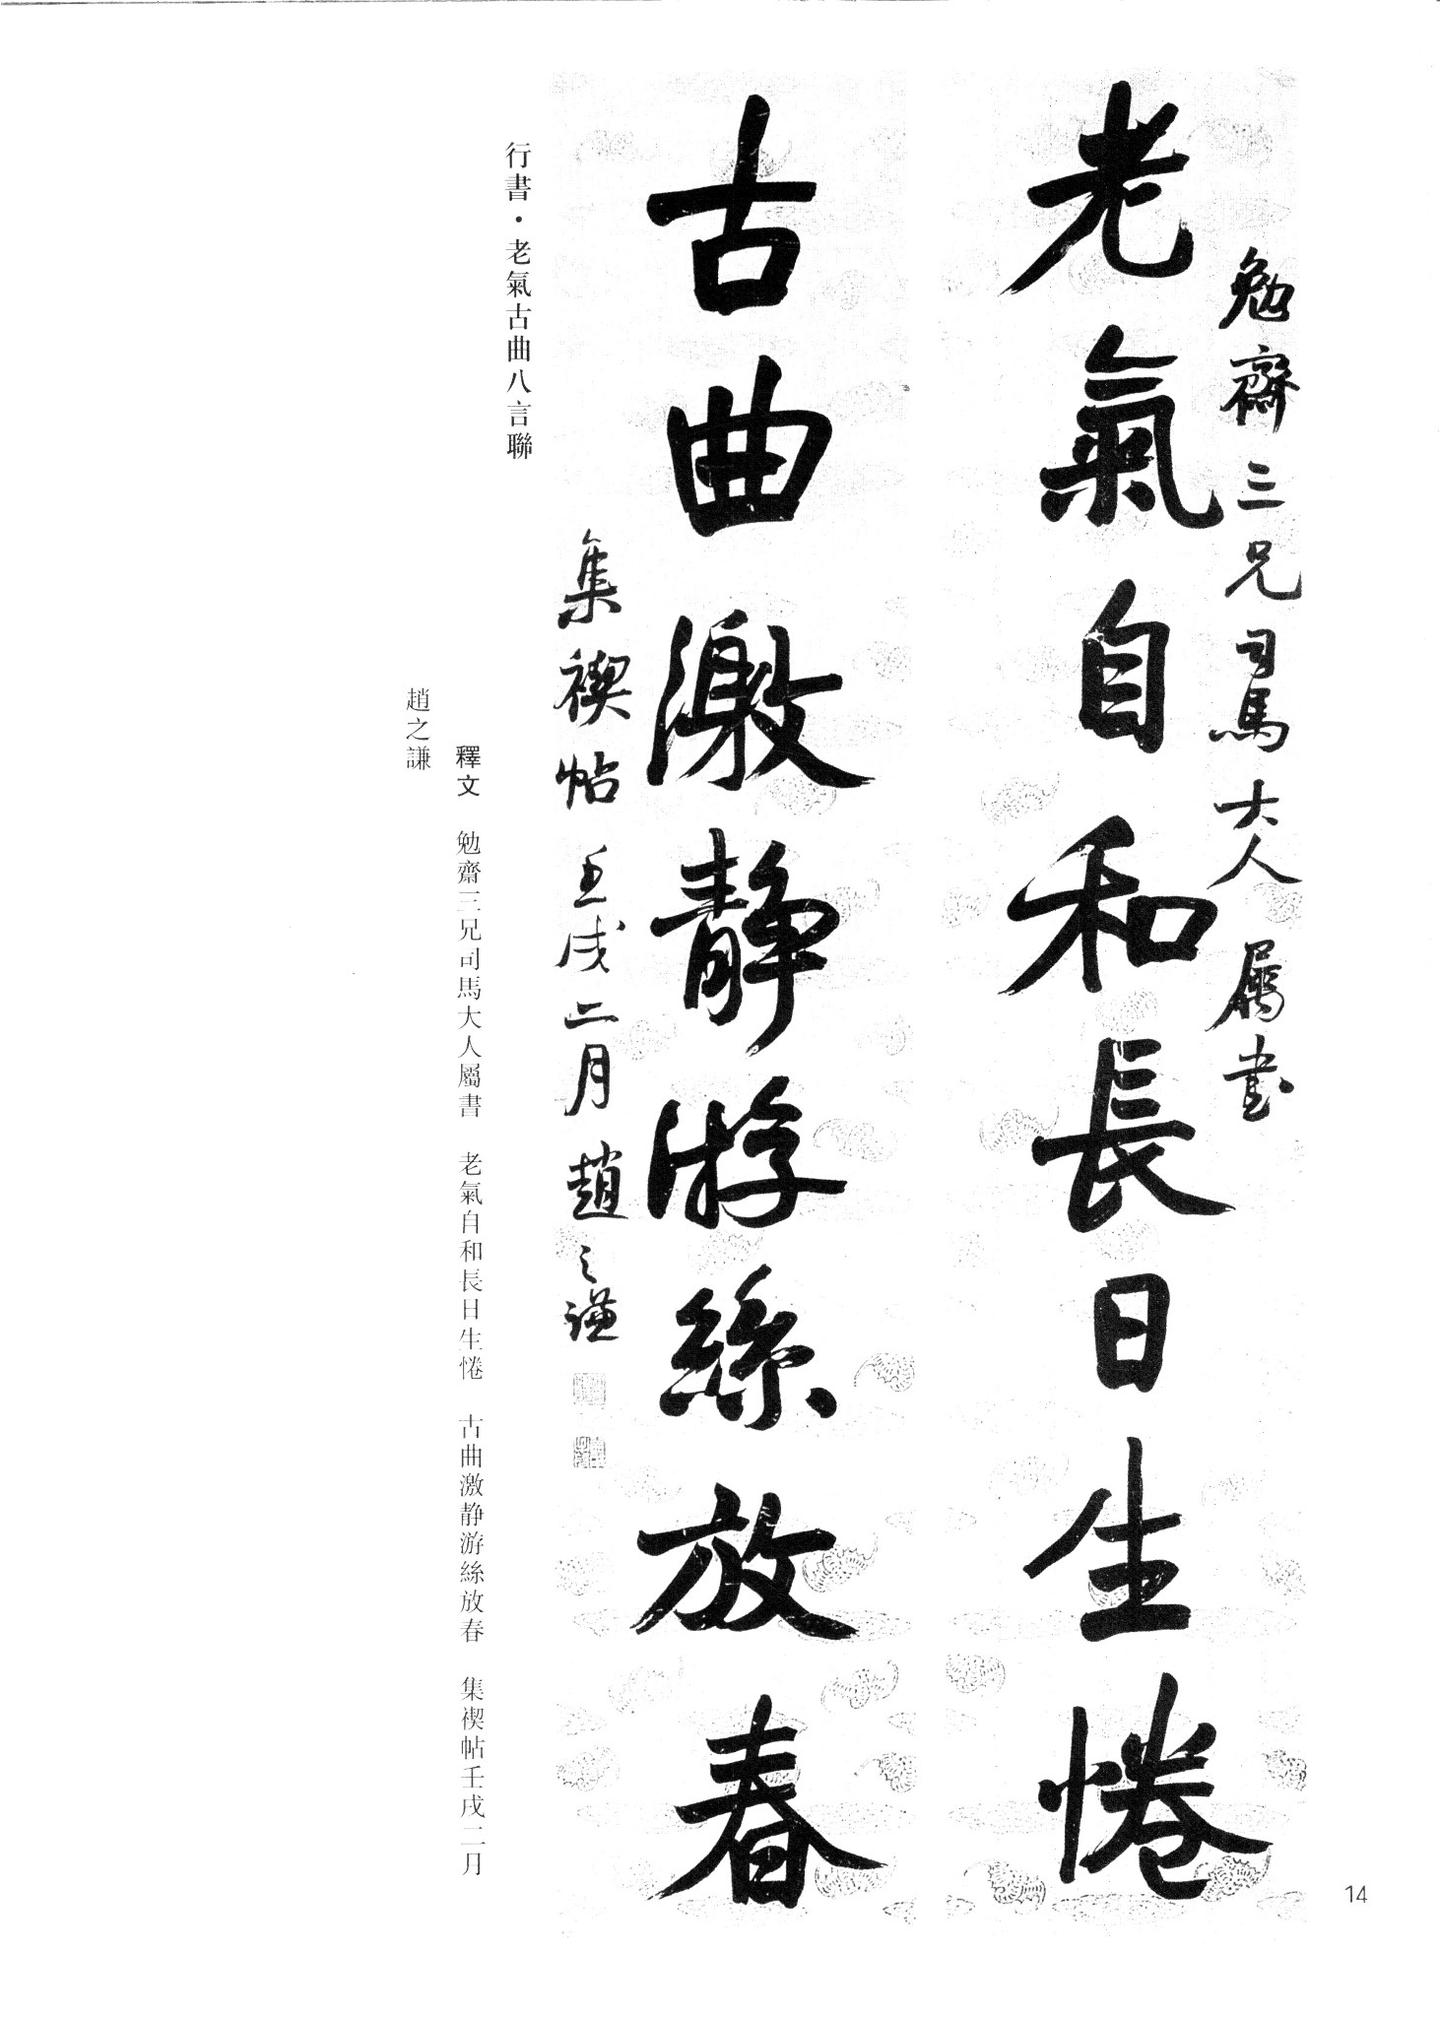 勉齋三兄司馬大人屬書
老氣自和長日生惓
古曲激静游絲放春
集禊帖壬戌二月趙之謙
行書·老氣古曲八言聯
釋文 勉齋三兄司馬大人屬書 老氣自和長日生惓 古曲激静游絲放春 集禊帖壬戌二月
趙之謙
14